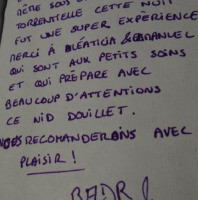 MÊME SOUS
TORRENTIELLE CETTE NUIT
FUT UNE SUPER EXPÉRIENCE
MERCI À BLÉATICIA & EMMANUEL
QUI SONT AUX PETITS SOINS
ET QUI PRÉPARE AVEC
BEAUCOUP D'ATTENTIONS
CE NID DOUILLET.
RECOMANDERONS AVEC
PLAISIR !